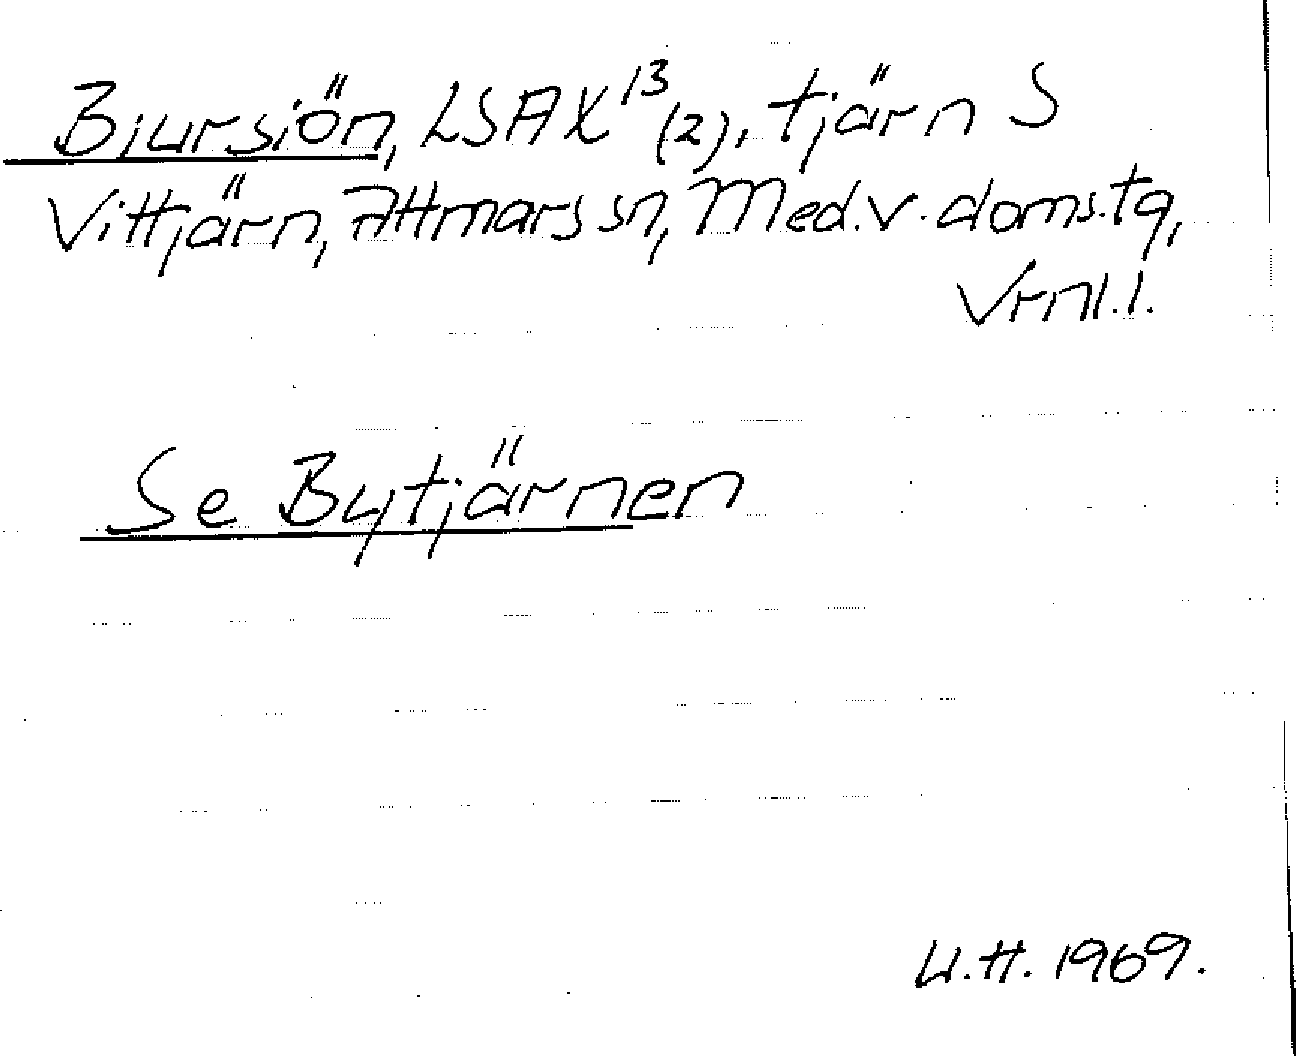 Bjursiön, LSA X¹³(2), tjärn S
Vittjärn, Attmars sn, Med.v.doms.tg,
Vrnl.l.
Se Bytjärnen
U.H. 1969.